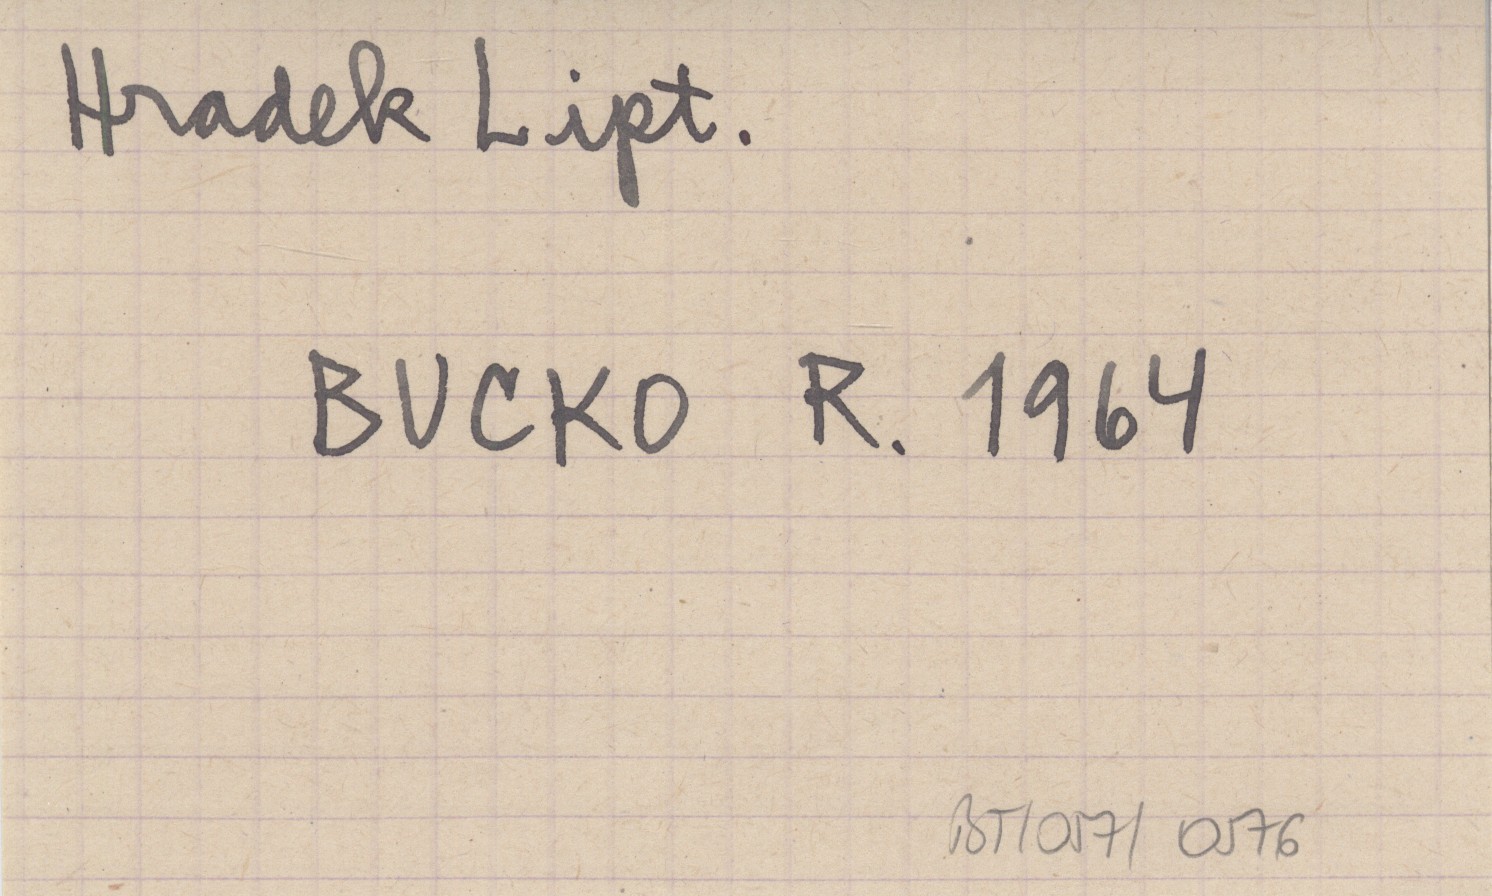 Hradek Lipt.
BUCKO R. 1964
BT/057/ 0576